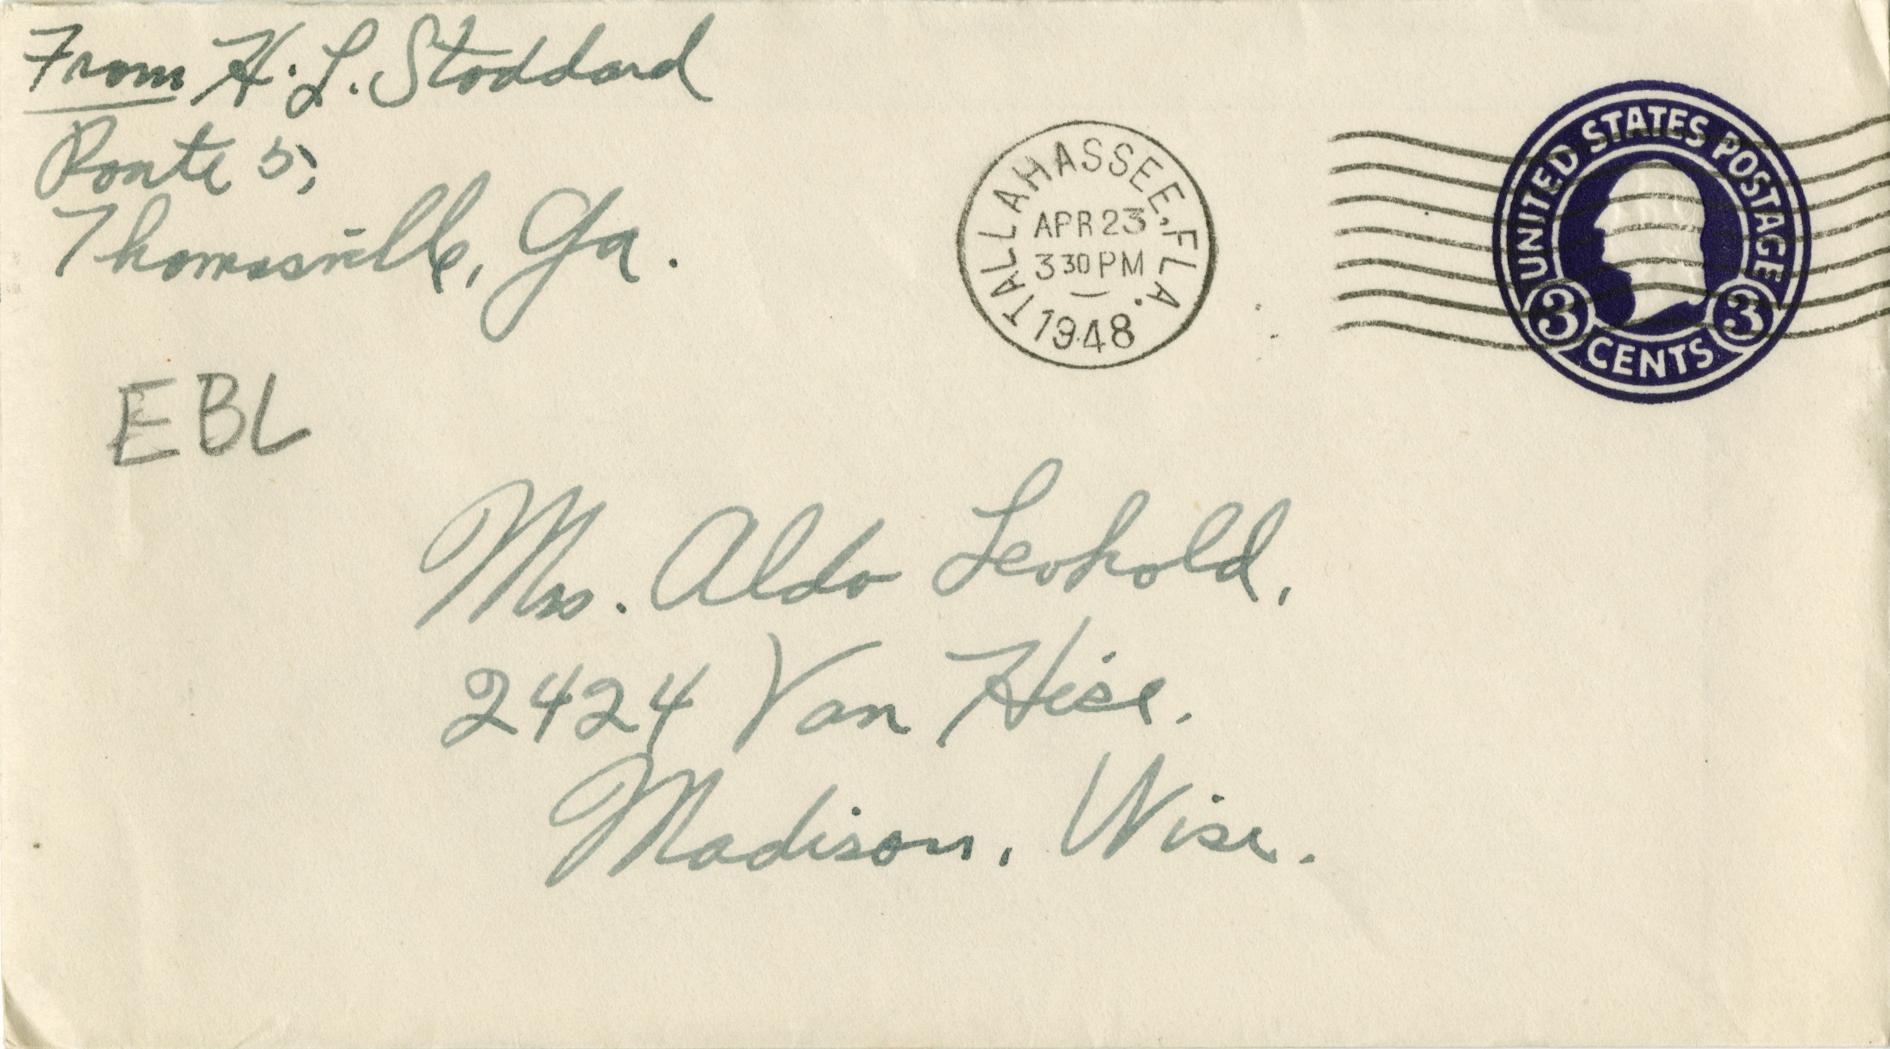 From H. L. Stoddard
Route 5,
Thomasville, Ga.
TALLAHASSEE, FLA.
APR 23
3 30 PM
1948
UNITED STATES POSTAGE
3 CENTS 3
EBL
Mrs. Aldo Leopold,
2424 Van Hise.
Madison, Wisc.